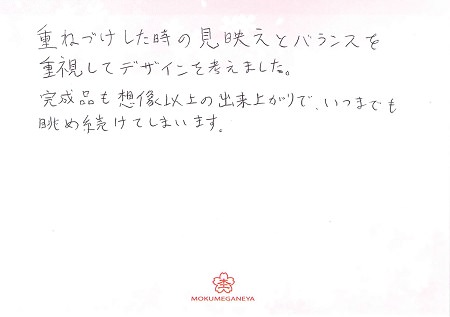 重ねづけした時の見映えとバランスを
重視してデザインを考えました。
完成品も想像以上の出来上がりで、いつまでも
眺め続けてしまいます。
MOKUMEGANEYA